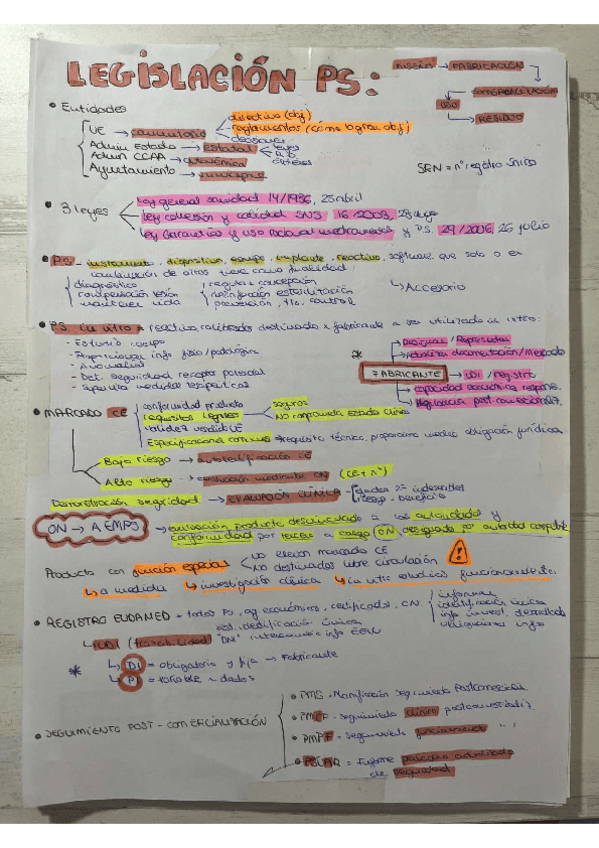 LEGISLACIÓN PS:
DISEÑO → FABRICACIÓN
COMERCIALIZACIÓN
USO
RESIDUO
• Entidades
UE → comunitario
directiva (obj)
reglamentos (cómo lograr obj)
decisiones
Admin Estado → estatal
leyes
R.D
órdenes
Admin CCAA → autonómica
Ayuntamiento → municipal
SRN = nº registro único
• 3 leyes
Ley general sanidad 14/1986, 25 abril
Ley cohesión y calidad SNS 16/2003, 28 mayo
Ley Garantías y uso racional medicamentos y P.S. 29/2006, 26 julio
• P.S → instrumento, dispositivo, equipo, implante, reactivo, software que solo o en
combinación de otros tiene como finalidad:
diagnóstico
compensación lesión
mantener vida
regular concepción
desinfección esterilización
prevención, tto, control
↳ Accesorio
• PS in vitro → reactivo, calibrador destinado x fabricante a ser utilizado in vitro:
- Estudio
- Proporcionar info fisio/patológica
- Anomalías
- Det. seguridad receptor potencial
- Supervisar medidas terapéuticas
*
FABRICANTE
Actualizar documentación/
→ UDI / registro
→ capacidad
→ Vigilancia post-comercializ.
• MARCADO CE
conformidad producto
requisitos legales
seguros
NO comprometa estado clínico
validez
Especificaciones comunes → requisito técnico, proporciona medios obligación jurídica
Bajo riesgo → autocertificación CE
Alto riesgo → evaluación mediante ON (CE + nº)
Demostración seguridad → EVALUACIÓN CLÍNICA
efectos 2º indeseables
riesgo - beneficio
ON → AEMPS
→ evaluación producto
conformidad por terceros a cargo ON designado por autoridad competente
Producto con función especial
NO llevan marcado CE
NO destinados libre circulación
!
↳ a medida ↳ investigación clínica ↳ in vitro estudios funcionamiento
• REGISTRO EUDAMED → todos PS, ag económicos, certificados, ON
informar
identificación única
info invest.
↳ UDI (trazabilidad)
*
↳ DI = obligatorio y fijo → Fabricante
↳ PI = variable
• SEGUIMIENTO POST-COMERCIALIZACIÓN
• PMS - Planificación seguimiento Postcomercializ
• PMCF - seguimiento clínico postcomercializ.
• PMPF - Seguimiento funcionamiento " "
• PSUR = Informe periódico actualizado
de seguridad